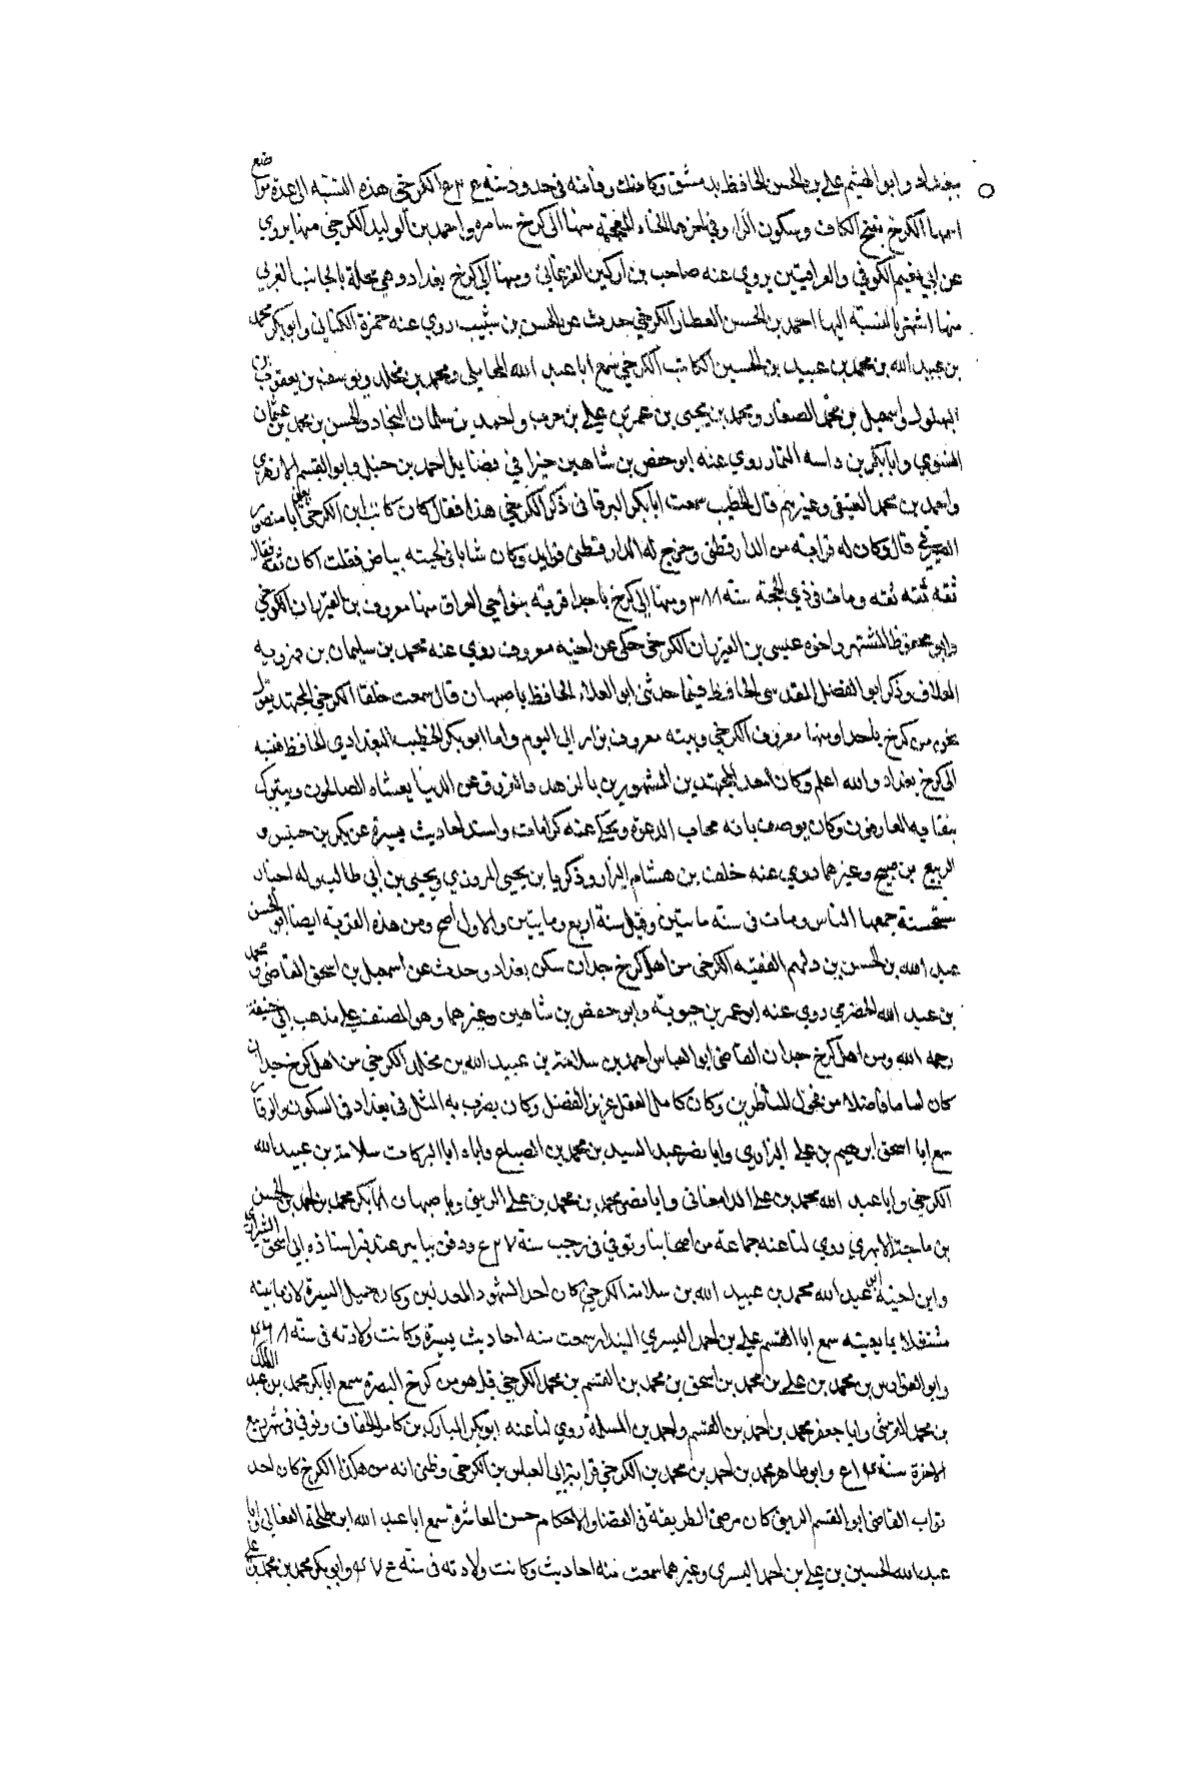 ببغداد وابو الهيثم علي بن الحسن الحافظ بدمشق وكانت وفاته في حدود سنة ع٣ع الكرخي هذه النسبة الى عدة مواضع
اسمها الكرخ بفتح الكاف وسكون الراء وفي اخرها الخاء المعجمة منها الى كرخ سامره واحمد بن الوليد الكرخي منها يروي
عن ابي نعيم الكوفي والعراقيين يروي عنه صاحب بن اركين الفرغاني ومنها الى كرخ بغداد وهي محلة بالجانب الغربي
منها اشتهر بالنسبة اليها احمد بن الحسن العطار الكرخي حدث عن الحسن بن شبيب روي عنه حمزة الكناني وابو بكر محمد
بن عبيد الله بن محمد بن عبيد بن الحسين الكاتب الكرخي سمع ابا عبد الله المحاملي ومحمد بن مخلد ويوسف بن يعقوب بن
البهلول واسمعيل بن محمد الصفار ومحمد بن يحيى بن عمر بن علي بن حرب واحمد بن سلمان النجاد والحسن بن محمد بن عثمان
الفسوي وابا بكر بن داسه التمار روي عنه ابو حفص بن شاهين خبرا في فضايل احمد بن حنبل وابو القسم الازهري
واحمد بن محمد العتيقي وغيرهم قال الخطيب سمعت ابا بكر البرقاني ذكر الكرخي هذا فقال كان كاتب ابن الكرخي يعني ابا منصور
قال وكان له قرابته من الدارقطني وخرج له الدارقطني فوايد وكان شابا في لحيته بياض فقلت اكان ثقة فقال
ثقه ثقه ثقه ومات في ذي الحجة سنة ٣٨٨ ومنها الى كرخ باجدا قرية بنواحي العراق منها معروف بن الفيرزان الكرخي
وابو محفوظ المشتهر واخوه عيسى بن الفيرزان الكرخي حكى عن اخيه معروف روي عنه محمد بن سليمان بن فهرويه
العلاف وذكر ابو الفضل المقدسي الحافظ فيما حدثني ابو العلاء الحافظ باصبهان قال سمعت خلقا الكرخي المجتهد يقول
نحن من كرخ باجدا ومنها معروف الكرخي وبيته معروف يزار الى اليوم واما ابو بكر الخطيب البغدادي الحافظ فنسبه
الى كرخ بغداد والله اعلم وكان احد المجتهدين المشهورين بالزهد والعزوف عن الدنيا يغشاه الصالحون ويتبرك
بلقايه العارفون وكان يوصف بانه مجاب الدعوة ويحكى عنه كرامات واسند احاديث يسيرة عن بكر بن خنيس و
الربيع بن صبيح وغيرهما روي عنه خلف بن هشام البزار وذكريا بن يحيى المروزي ويحيى بن ابي طالب وله اخبار
مستحسنة جمعها الناس ومات في سنة مائتين وقيل سنة اربع ومايتين والاول اصح ومن هذه القرية ايضا ابو الحسن
عبيد الله بن الحسن بن دلهم الفقيه الكرخي من اهل كرخ جدان سكن بغداد وحدث عن اسمعيل بن اسحق القاضي و محمد
بن عبد الله الحضرمي روي عنه ابو عمر بن حيويه وابو حفص بن شاهين وغيرهما وهو المصنف على مذهب ابي حنيفة
رحمه الله ومن اهل كرخ جدان القاضي ابو العباس احمد بن سلامة بن عبيد الله بن مخلد الكرخي من اهل كرخ جدان
كان اماما فاضلا من فحول المناظرين وكان كامل العقل غزير الفضل وكان يضرب به المثل في بغداد في السكون والوقار
سمع ابا اسحق ابرهيم بن علي وابا نصر عبد السيد بن محمد بن الصباغ واباه ابا البركات سلامة بن عبيد الله
الكرخي وابا عبد الله محمد بن علي الدامغاني وابا نصر محمد بن محمد بن علي الزينبي وباصبهان ابا بكر محمد بن احمد بن الحسن
بن ماجة الابهري روي لنا عنه جماعة من اصحابنا وتوفي في رجب سنة ٢٧ع ودفن بباب عند قبر استاذه ابي اسحق الشيرازي
وابن اخيه ابو عبد الله محمد بن عبيد الله بن سلامة الكرخي كان احد الشهود المعدلين وكان جميل السيرة لازما بيته
مشتغلا بما يعينه سمع ابا القسم علي بن احمد البسري البندار سمعت منه احاديث يسيرة وكانت ولادته في سنة ٤٦٨
وابو بن محمد بن علي بن محمد بن اسحق بن محمد بن القسم بن محمد الكرخي قيل هو من كرخ البصرة سمع ابا بكر محمد بن عبد الملك
بن محمد القرشي وابا جعفر محمد بن احمد بن القسم واحمد بن المسلمة روي لنا عنه ابو بكر المبارك بن كامل الخفاف وتوفي في شهر ربيع
الاخرة سنة وابو طاهر محمد بن احمد بن محمد بن الكرخي قرابة ابي العباس بن الكرخي وظني انه من هكذا الكرخ كان احد
نواب القاضي ابو القسم الزينبي كان مرضي الطريقة في القضاء والاحكام حسن المعاشرة سمع ابا عبد الله ابن طلحة النعالي وابا
عبد الله الحسين بن علي بن احمد البسري وغيرهما سمعت منه احاديث وكانت ولادته في سنة وابو بكر محمد بن محمد بن علي